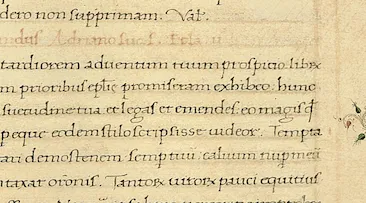 dero non supprimam. Val.
ndus Adriano suo s. Epla ii
tardiorem adventum tuum prospicio libr
m prioribus eplis promiseram exhibeo. hunc
suetudine tua et legas et emendes. eo magis qd
peque eodem stilo scripsisse videor. Tempta
tari demostenem semp tuu. calvum nup meu
taxat oronis. Tantorx virorx pauci equitius